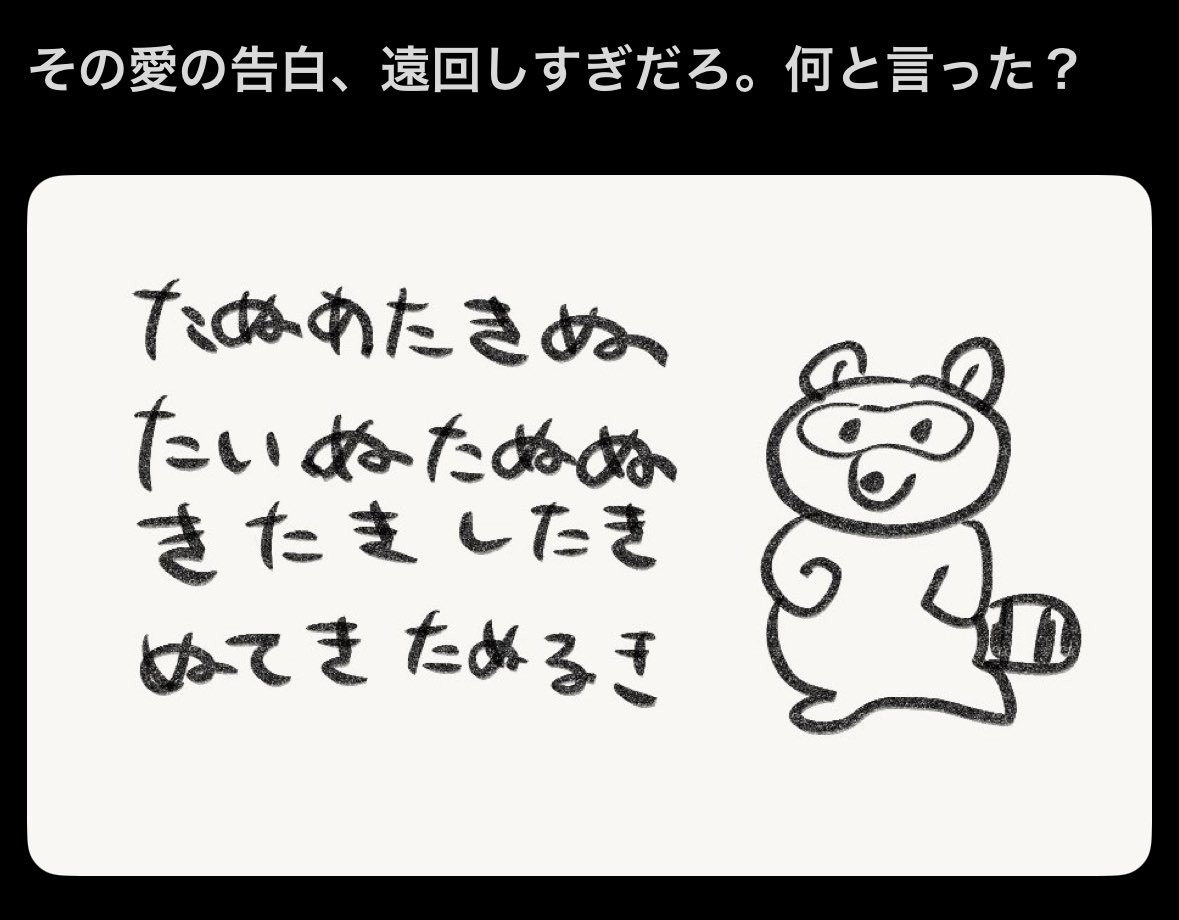 その愛の告白、遠回しすぎだろ。何と言った？
たぬあたきぬ
たいぬたぬぬ
きたきしたき
ぬてきたぬるき